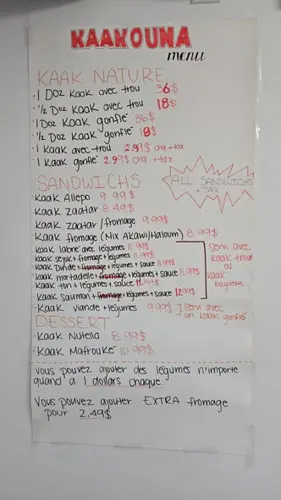 KAAKOUNA
menu
KAAK NATURE
· 1 Doz Kaak avec trou 36$
· ½ Doz Kaak avec trou 18$
· 1 Doz Kaak gonflé 36$
· ½ Doz Kaak gonflé 18$
· 1 Kaak avec trou 2.99$ ch +tax
· 1 Kaak gonflé 2.99$ ch +tax
SANDWICHS
ALL SANDWICHS
+ TAX
· Kaak Allepo 9.99$
· Kaak zaatar 8.49$
· Kaak zaatar/fromage 9.99$
· Kaak fromage (Mix Akawi/Haloum) 8.99$
Kaak labné avec légumes
Kaak + fromage + légumes
Kaak Dinde + fromage + légumes + sauce
Kaak mortadelle + fromage + légumes + sauce
Kaak thon + légumes + sauce
Kaak Saumon + fromage + légumes + sauce 12.99$
servi avec
Kaak trou
ou
Kaak
baguette
· Kaak viande + légumes 9.99$ servi avec
un kaak gonflé
DESSERT
· Kaak Nutella 8.99$
· Kaak Mafrouke 10.99$
Vous pouvez ajouter des légumes n'importe
quand à 1 dollars chaque
Vous pouvez ajouter EXTRA fromage
pour 2.49$